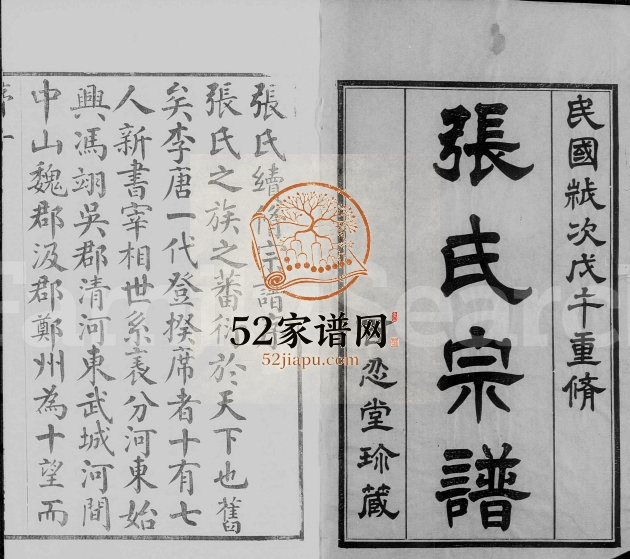 民國歲次戊午重脩
張氏宗譜
忍堂珍藏
張氏續脩宗譜
張氏之族之蕃衍於天下也舊
矣李唐一代登揆席者十有七
人新書宰相世系表分河東始
興馮翊吳郡清河東武城河間
中山魏郡汲郡鄭州為十望而
52家谱网
52jiapu.com